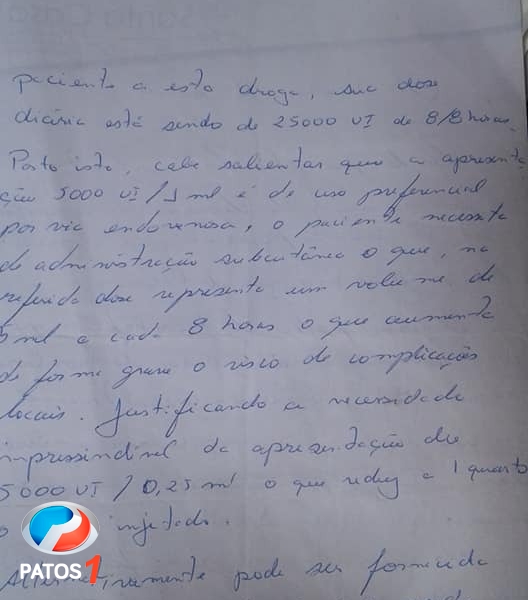 Santa Casa
paciente a esta droga, sua dose
diária está sendo de 25000 UI de 8/8 horas.
Posto isto, cabe salientar que a apresenta
ção 5000 UI/1 ml é de uso preferencial
por via endovenosa, o paciente necessita
de administração subcutânea o que, na
referida dose representa um volume de
5 ml a cada 8 horas o que aumenta
de forma grave o risco de complicações
locais. Justificando a necessidade
impressindivel da apresentação de
5000 UI/0,25 ml o que reduz a 1 quarto
o injetado.
Alternativamente pode ser fornecida
PATOS 1